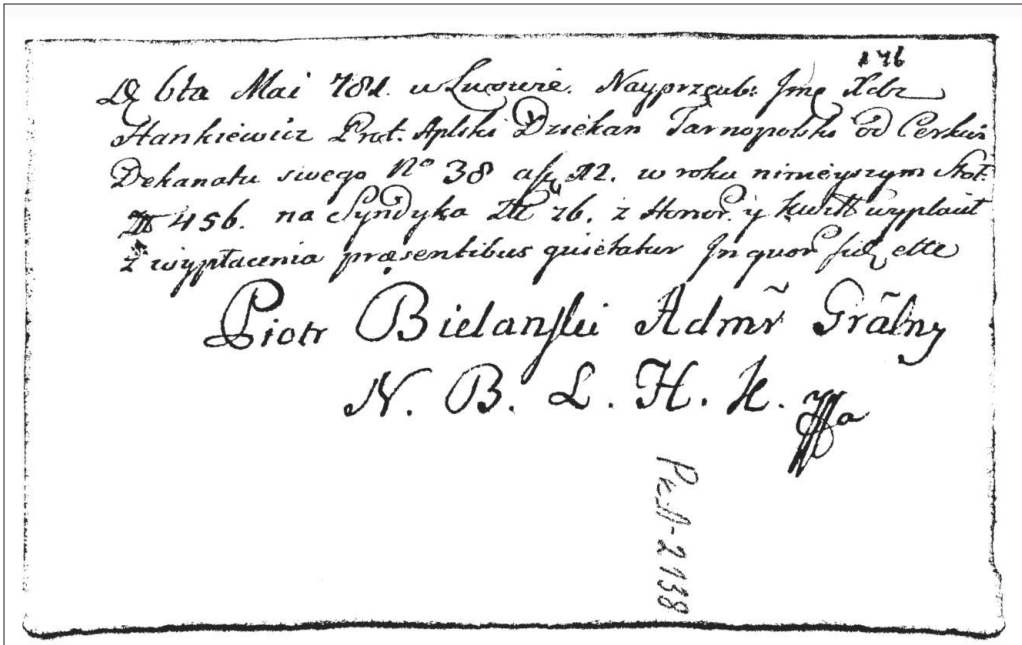 176
D 6ta Mai 781. w Lwowie. Nayprzewb: Jmc Xdz
Hankiewicz Prot. Aplski Dziekan Tarnopolski od Cerkwi
Dekanatu swego No 38 a 12. w roku ninieyszym
456. na Syndyka 76. z Honor. y kwitt wypłacił
z wypłacenia præsentibus quietatur In quor
Piotr Bielanski Admr Gralny
N. B. L. H. K.
PkA-2138